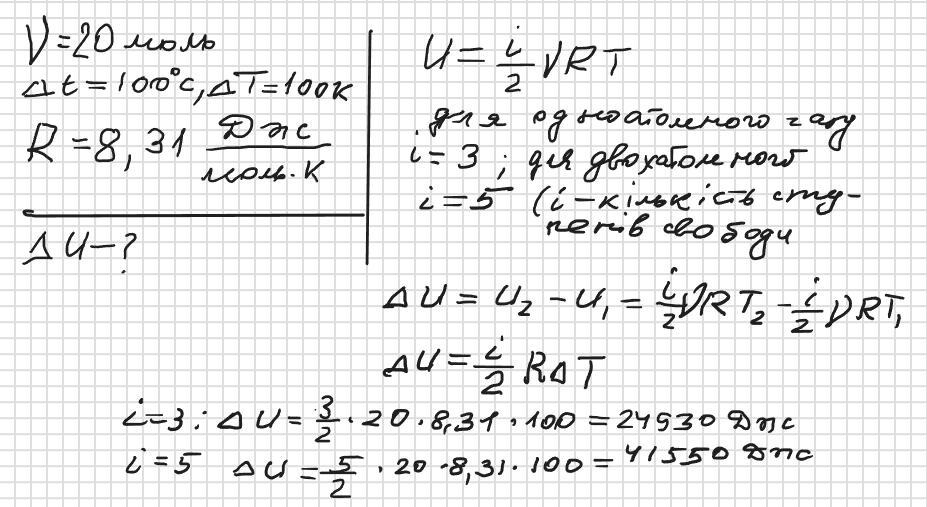 ν = 20 моль
Δt = 100°C, ΔT = 100K
R = 8,31 Дж/моль·К
ΔU – ?
U = i/2 νRT
для одноатомного газу
i = 3 ; для двохатомного
i = 5 (i – кількість сту-
пенів свободи
ΔU = U₂ – U₁ = i/2 νRT₂ – i/2 νRT₁
ΔU = i/2 RΔT
i = 3 : ΔU = 3/2 · 20 · 8,31 · 100 = 24930 Дж
i = 5 ΔU = 5/2 · 20 · 8,31 · 100 = 41550 Дж